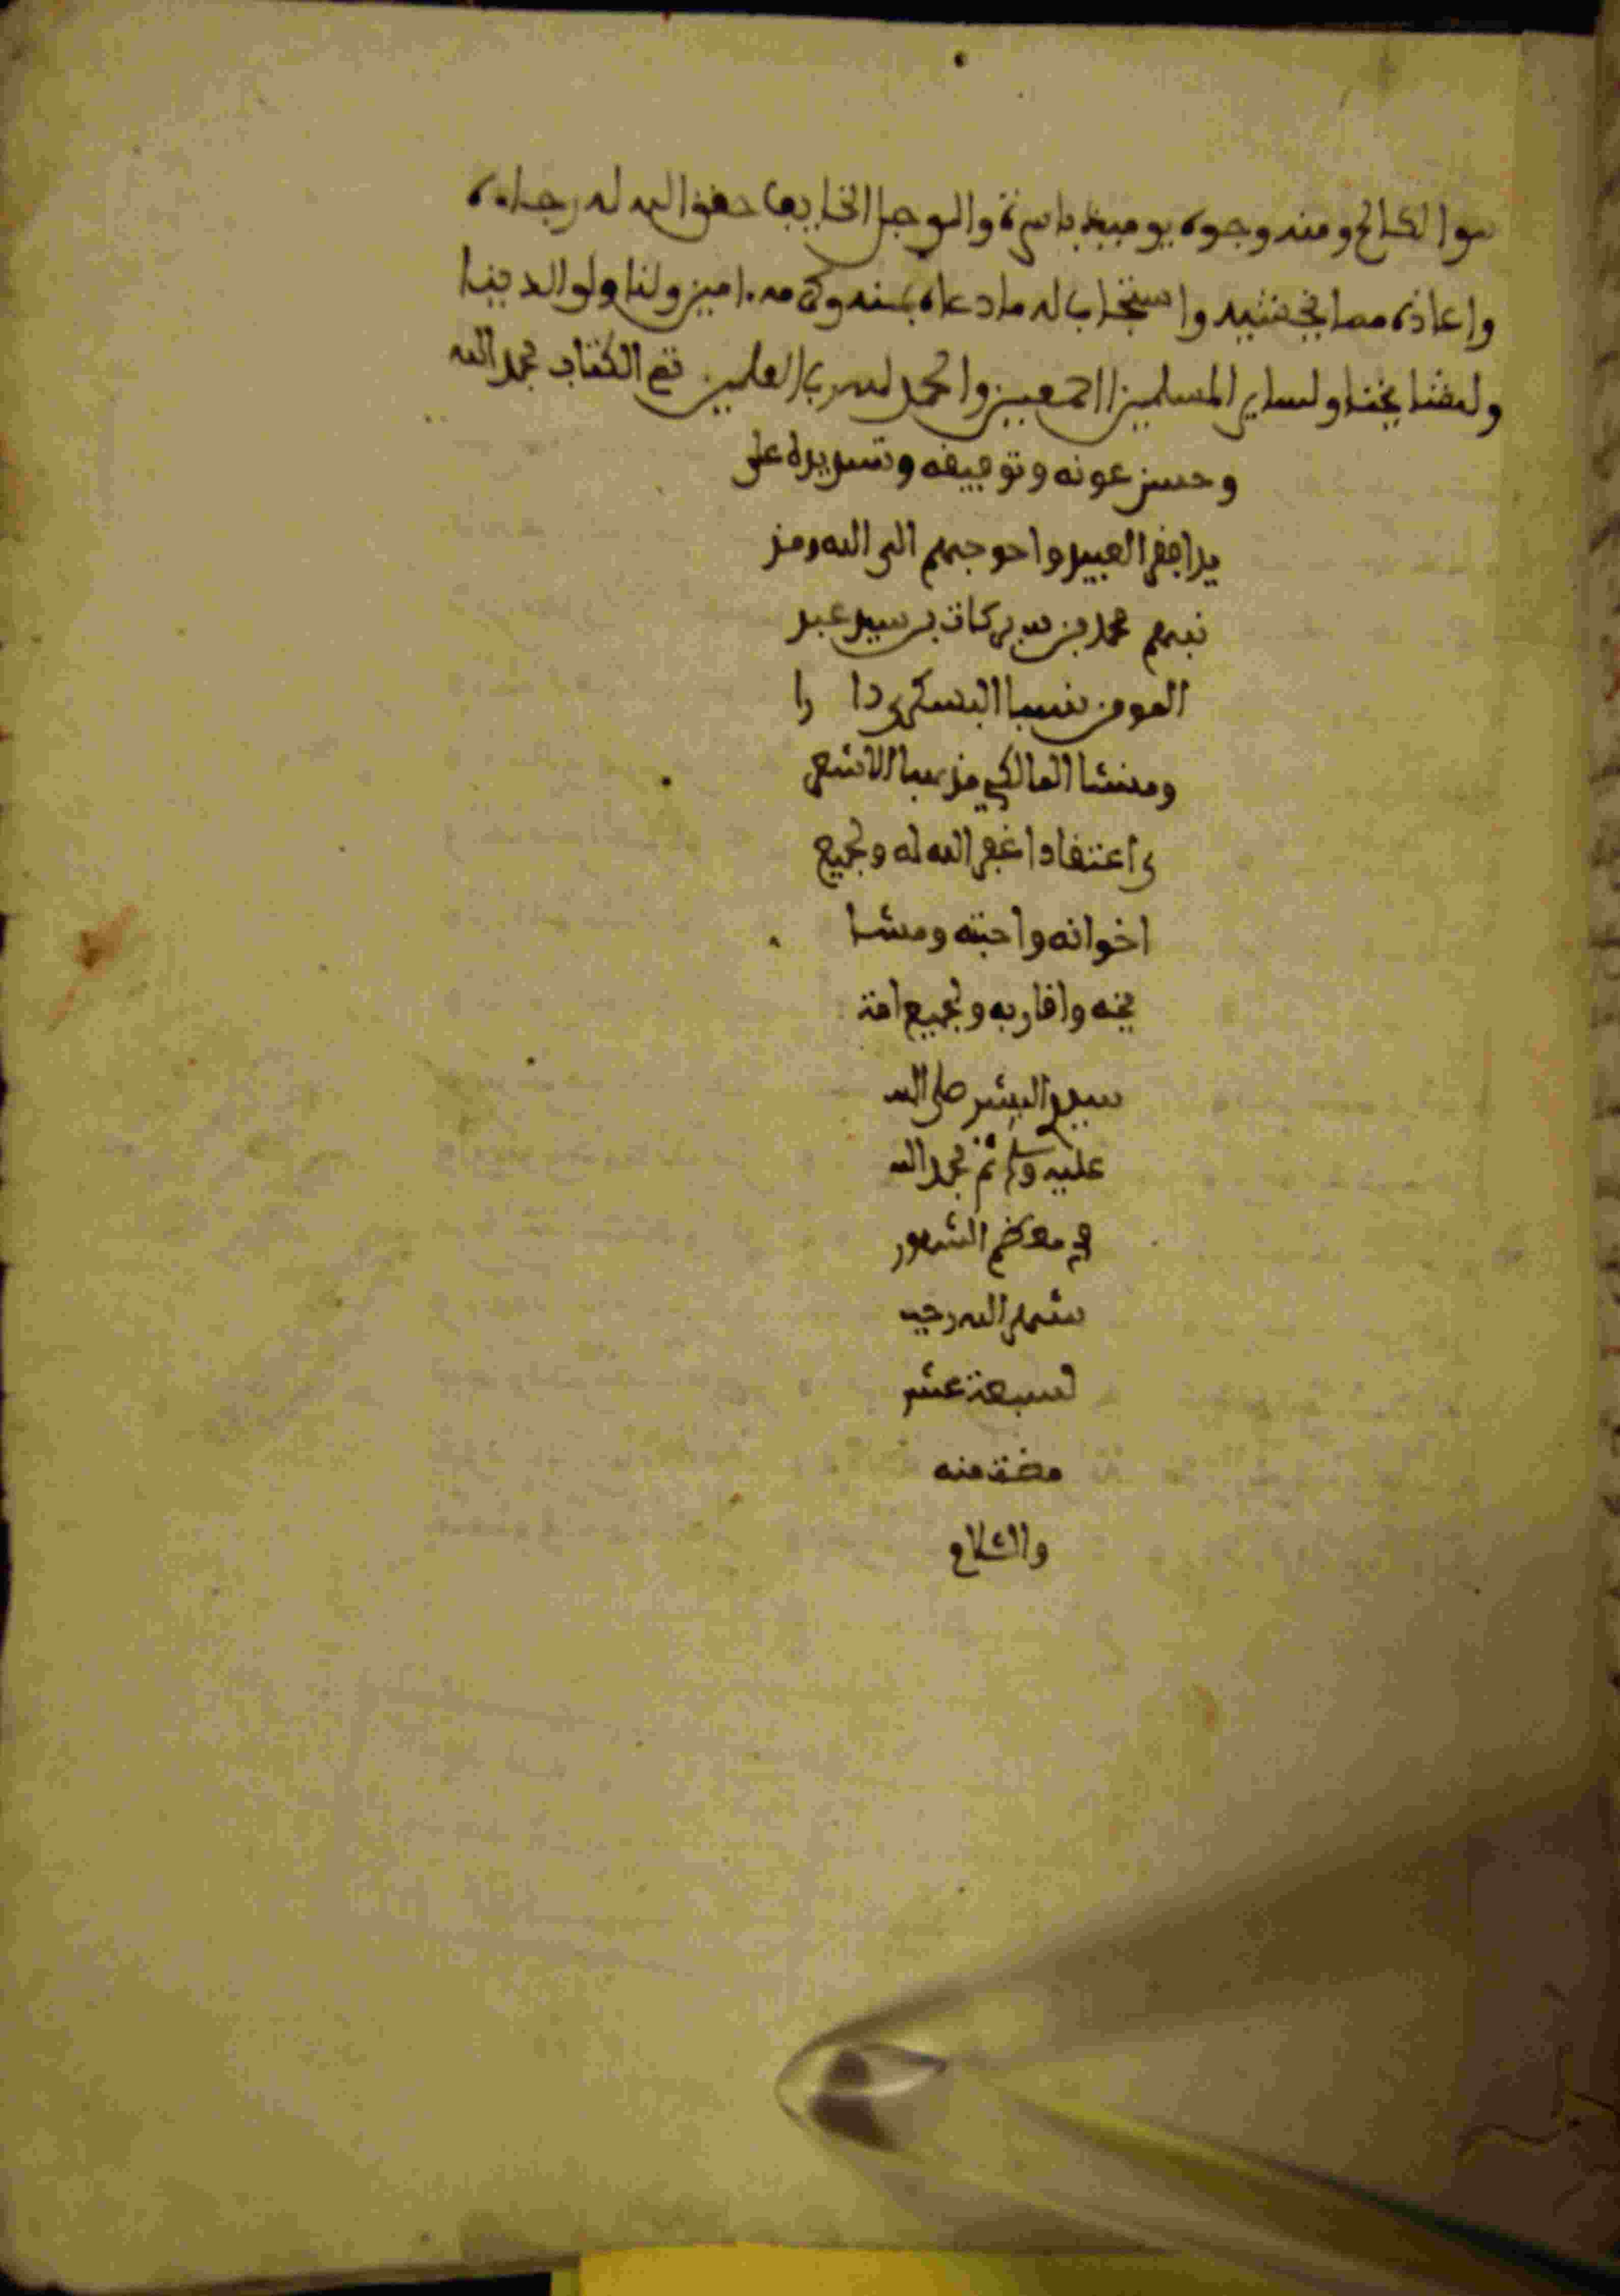 سوا الكالح ومنه وجوه يوميذ باسرة والوجل الخايف حقق الله له رجاءه
واعاذه مما يخشيه واستجاب له ما دعاه بمنه وكرمه امين ولنا ولوالدينا
ولمشايخنا ولساير المسلمين اجمعين والحمد لله رب العلمين تم الكتاب بحمد الله
وحسن عونه وتوفيقه وتسديده على
يد افقر العبيد واحوجهم الى الله ومن
نبهم محمد بن بركات بن سيد عبد
المومن نسبا البسكري دا را
ومنشا المالكي مذهبا الاشعر
ى اعتقادا غفر الله له ولجميع
اخوانه واحبته ومشا
يخه واقاربه ولجميع امة
سيد البشر صلى الله
عليه وسلم تم بحمد الله
في معظم الشهور
شهر الله رجب
لسبعة عشر
مضت منه
والسلام